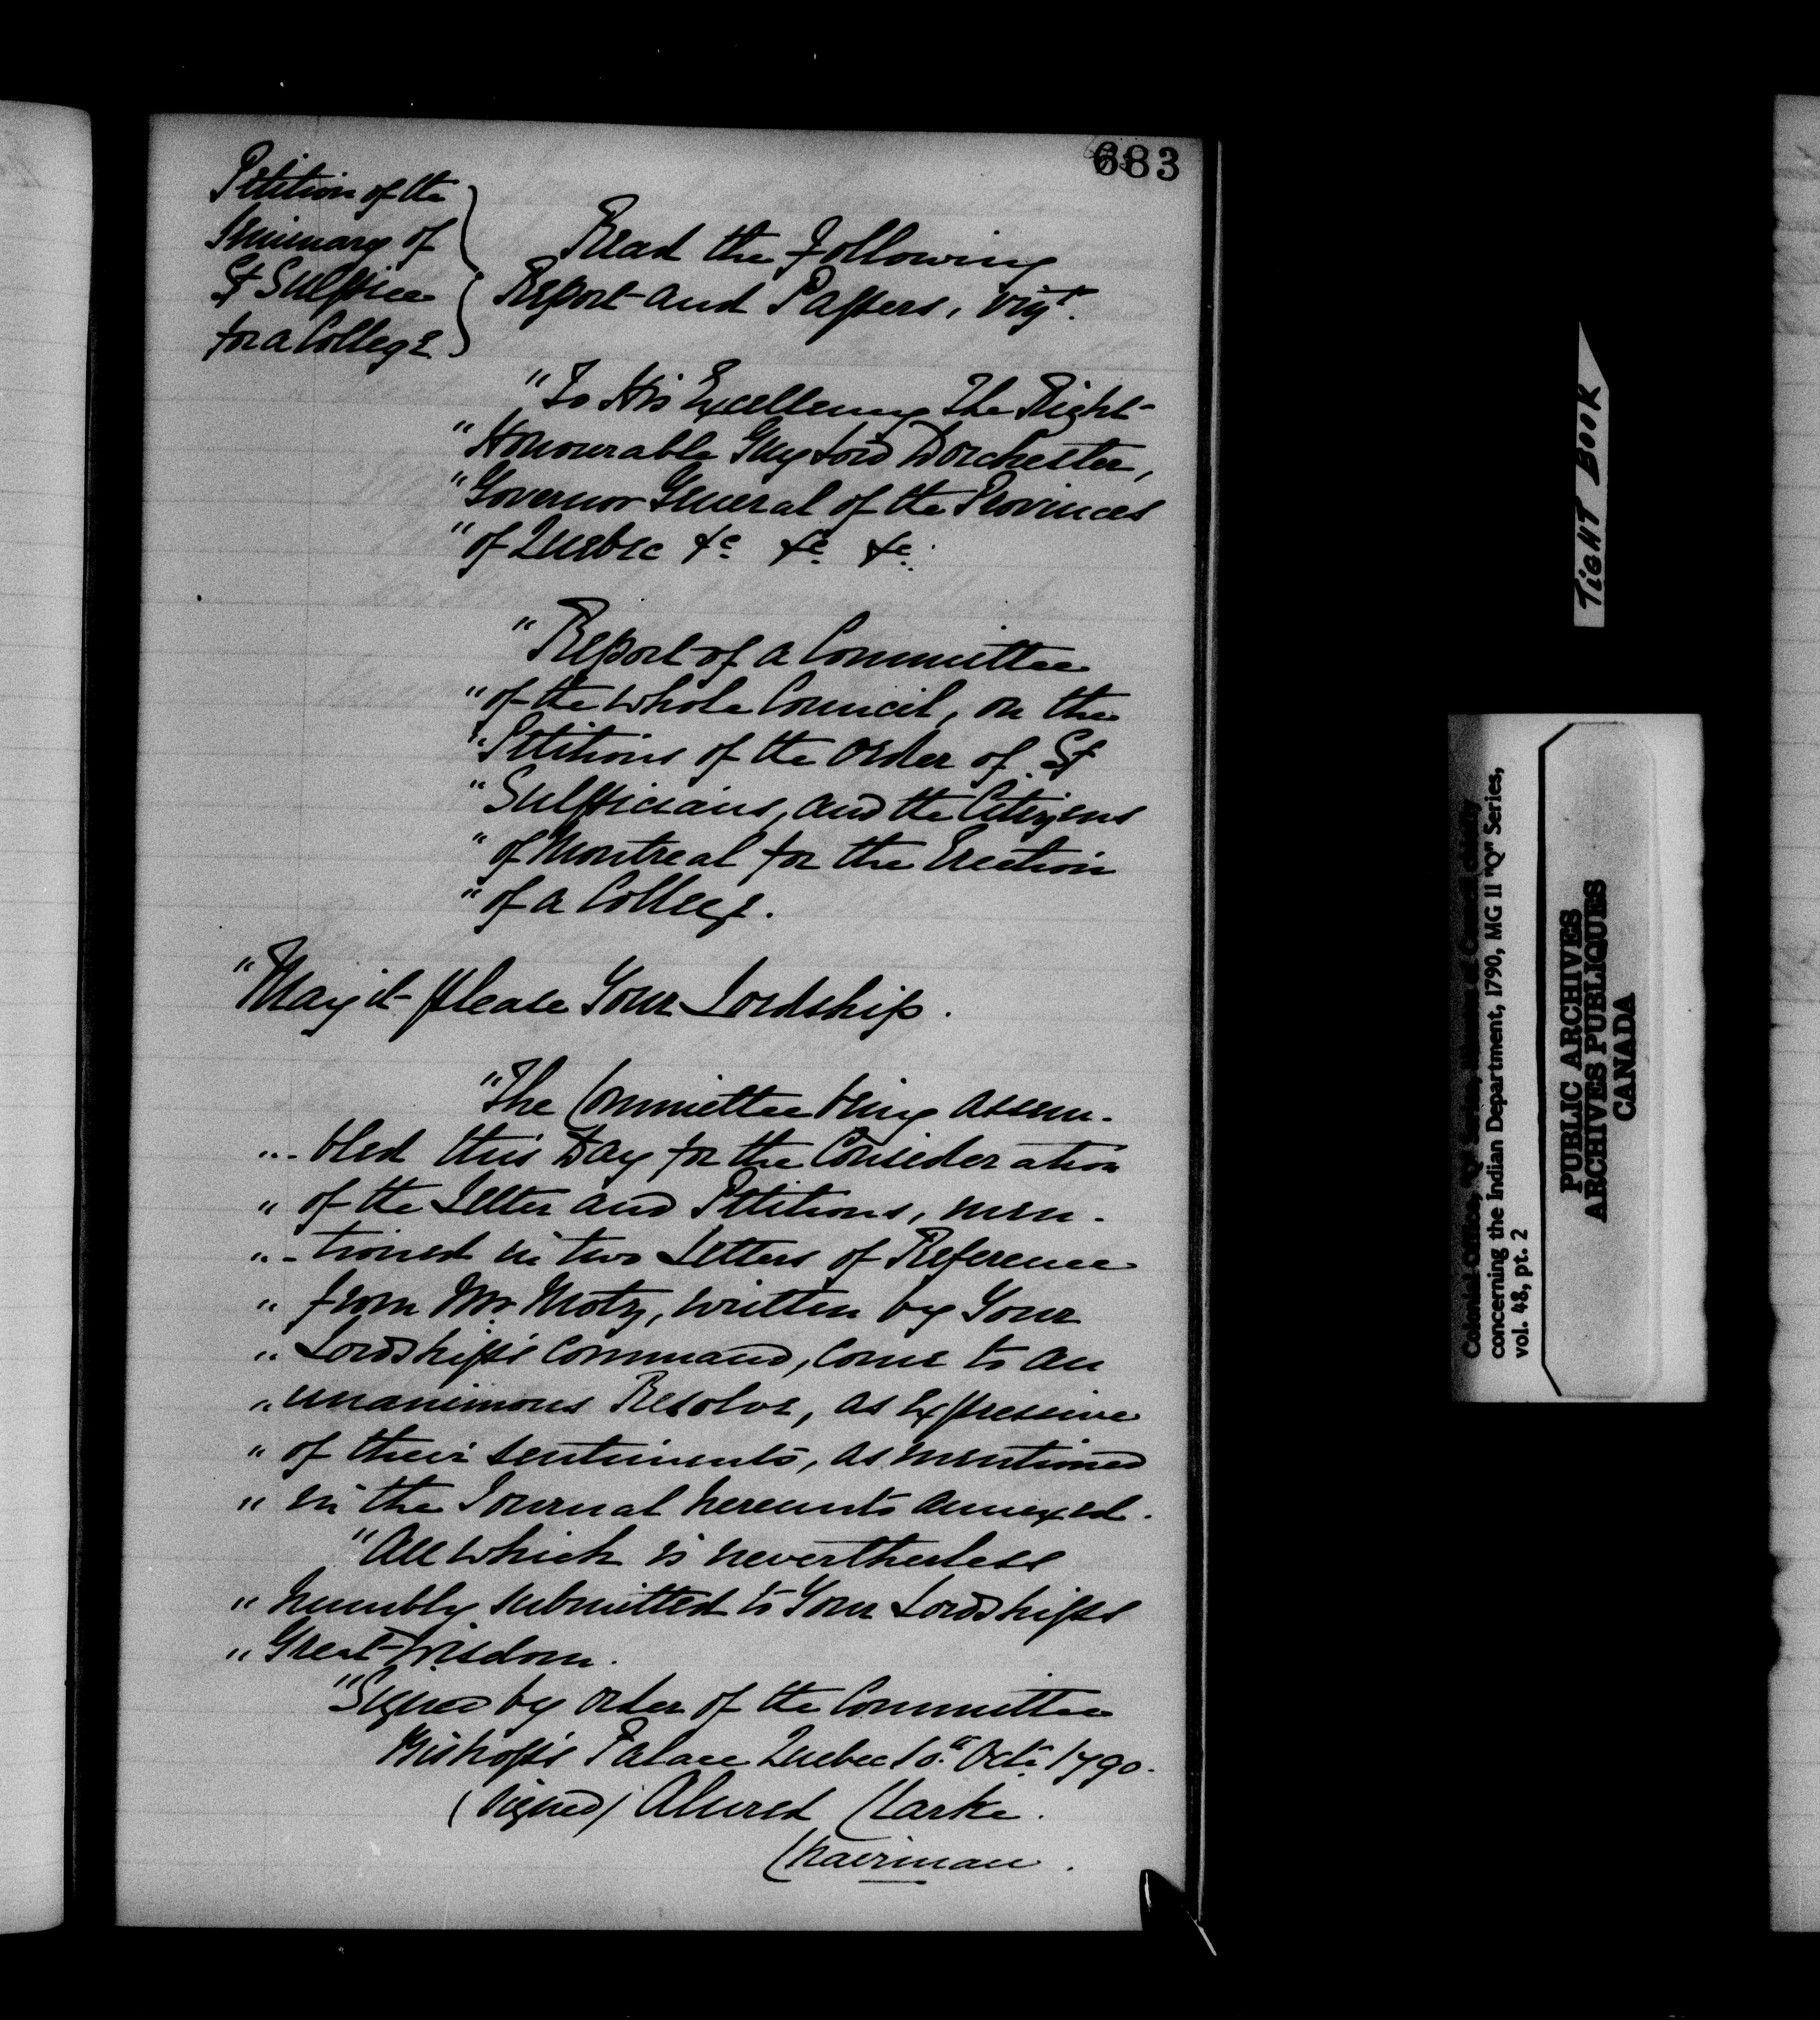 683
Petition of the
Seminary of
St Sulpice
for a College
Read the following
Report and Papers, vizt.
"To His Excellency The Right
"Honourable Guy Lord Dorchester,
"Governor General of the Provinces
"of Quebec &c &c &c.
"Report of a Committee
"of the whole Council, on the
"Petitions of the Order of St
"Sulpicians, and the Citizens
"of Montreal for the Erection
"of a College.
"May it please Your Lordship.
"The Committee being assem-
"-bled this Day for the Consideration
"of the Letter and Petitions, men-
"-tioned in two Letters of Reference
"from Mr. Motz, written by Your
"Lordship's Command, come to an
"unanimous Resolve, as Expressive
"of their sentiments, as mentioned
"in the Journal hereunto annexed.
"All which is nevertheless
"humbly submitted to Your Lordships
"Great Wisdom.
"Signed by order of the Committee
Bishop's Palace Quebec 10th Octr. 1790.
(signed) Alured Clarke.
Chairman.
TIGHT BOOK
Colonial Office, "Q" Series,
concerning the Indian Department, 1790, MG 11 "Q" Series,
vol. 48, pt. 2
PUBLIC ARCHIVES
ARCHIVES PUBLIQUES
CANADA